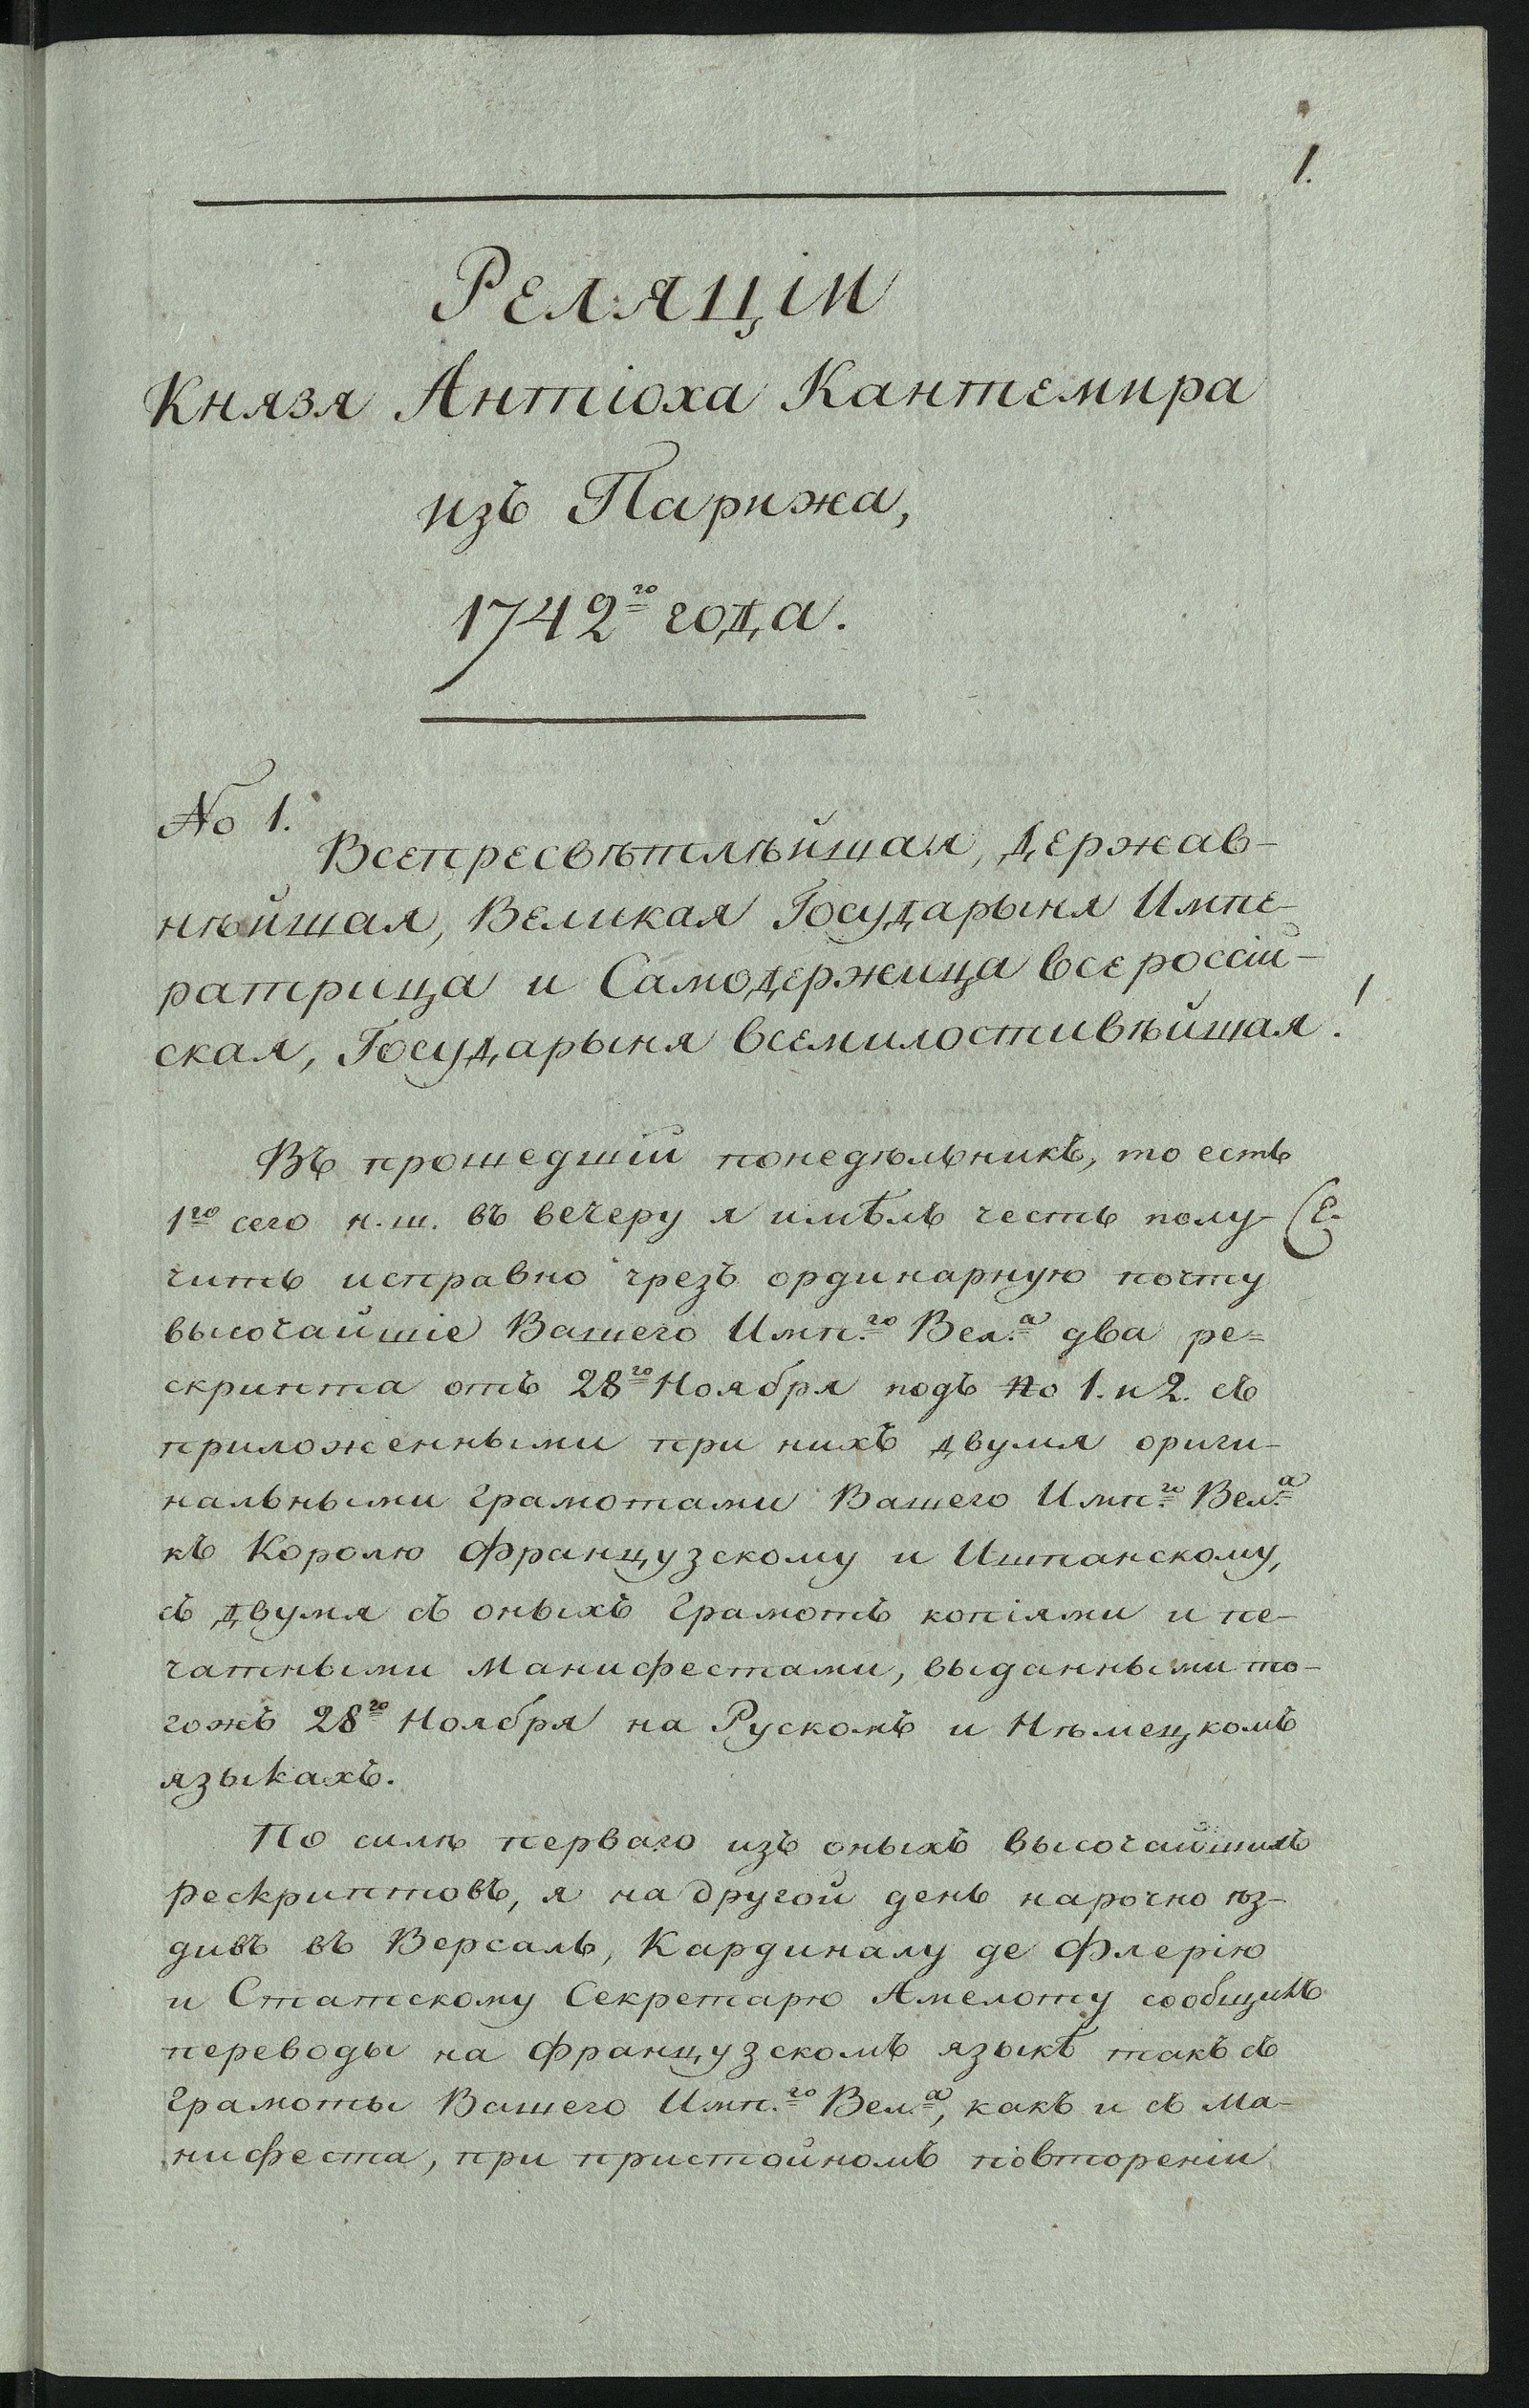 1.
Реляціи
Князя Антіоха Кантемира
изъ Парижа,
1742го года.
No 1.
Всепресвѣтлѣйшая, Державнѣйшая, Великая Государыня Импе-
ратрица и Самодержица всероссій-
ская, Государыня всемилостивѣйшая!
Въ прошедшій понедѣльникъ, то есть
1го сего н. ш. въ вечеру я имѣлъ честь полу-
чить исправно чрезъ ординарную почту
высочайшіе Вашего Имп.го Вел.а два ре=
скрипта отъ 28го Ноября подъ No 1. и 2. съ
приложенными при нихъ двумя ориги-
нальными грамотами Вашего Имп.го Вел.а
къ Королю Французскому и Ишпанскому,
съ двумя съ оныхъ грамотъ копіями и пе-
чатными Манифестами, выданными то-
гожъ 28го Ноября на Рускомъ и Нѣмецкомъ
языкахъ.
По силѣ перваго изъ оныхъ высочайшихъ
рескриптовъ, я на другой день нарочно ѣз-
дивъ въ Версаль, Кардиналу де Флерію
и Статскому Секретарю Амелоту сообщилъ
переводы на Французскомъ языкѣ такъ съ
грамоты Вашего Имп.го Вел.а, какъ и съ Ма-
нифеста, при пристойномъ повтореніи